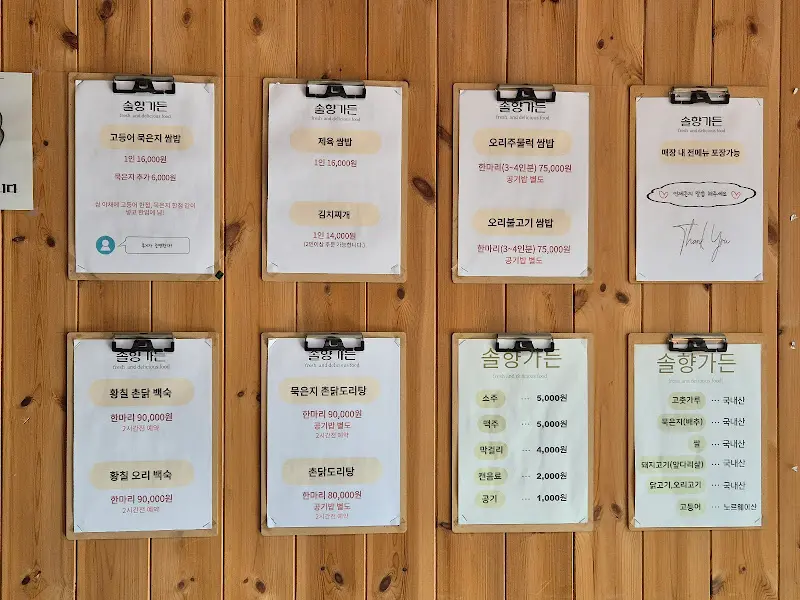 니다
솔향가든
fresh and delicious food
고등어 묵은지 쌈밥
1인 16,000원
묵은지 추가 6,000원
솔향가든
fresh and delicious food
제육 쌈밥
1인 16,000원
김치찌개
1인 14,000원
(2인이상 주문 가능합니다.)
솔향가든
fresh and delicious food
오리주물럭 쌈밥
한마리(3~4인분) 75,000원
공기밥 별도
오리불고기 쌈밥
한마리(3~4인분) 75,000원
공기밥 별도
솔향가든
fresh and delicious food
매장 내 전메뉴 포장가능
Thank You
솔향가든
fresh and delicious food
황칠 촌닭 백숙
한마리 90,000원
2시간전 예약
황칠 오리 백숙
한마리 90,000원
2시간전 예약
솔향가든
fresh and delicious food
묵은지 촌닭도리탕
한마리 90,000원
공기밥 별도
2시간전 예약
촌닭도리탕
한마리 80,000원
공기밥 별도
2시간전 예약
솔향가든
fresh and delicious food
소주 ··· 5,000원
맥주 ··· 5,000원
막걸리 ··· 4,000원
캔음료 ··· 2,000원
공기 ··· 1,000원
솔향가든
fresh and delicious food
고춧가루 ··· 국내산
묵은지(배추) ··· 국내산
쌀 ··· 국내산
돼지고기(앞다리살) ··· 국내산
닭고기,오리고기 ··· 국내산
고등어 ··· 노르웨이산